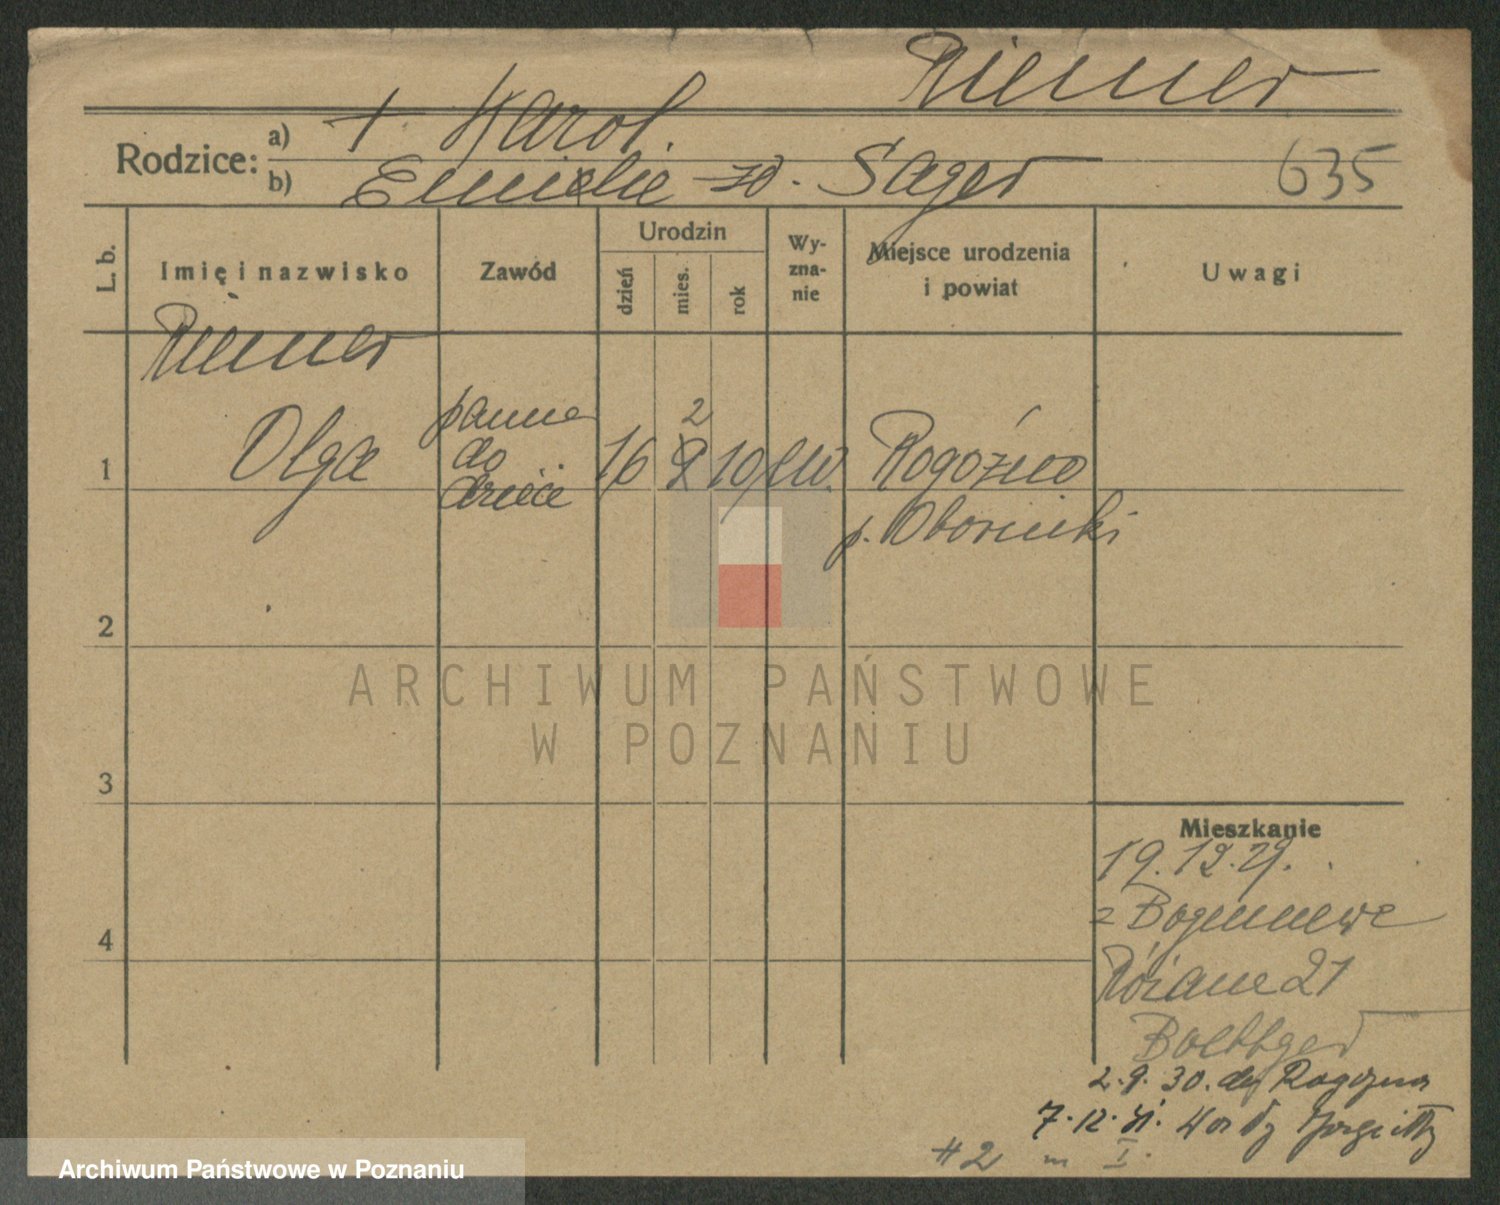 Riemer
Rodzice: a) + Karol.
b) Emilie zd. Sager
635
L. b.
Imię i nazwisko
Zawód
Urodzin
dzień
mies.
rok
Wy-
zna-
nie
Miejsce urodzenia
i powiat
Uwagi
Riemer
1 Olga
panna
do
dzieci
16 2 10 ew. Rogoźno
p. Oborniki
2
3
4
Mieszkanie
19.12.29.
z Boguniewa
Różana 21
Boettger
2.9.30. do Rogoźna
7.12.31.
#2 m I.
ARCHIWUM PAŃSTWOWE
W POZNANIU
Archiwum Państwowe w Poznaniu